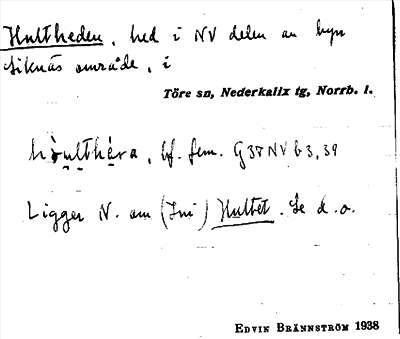 Hultheden, hed i NV delen av byn
Siknäs område, i
Töre sn, Nederkalix tg, Norrb. l.
bf. fem. G37NV b3,39
Ligger N. om (Int) Hultet. Se d. o.
EDVIN BRÄNNSTRÖM 1938